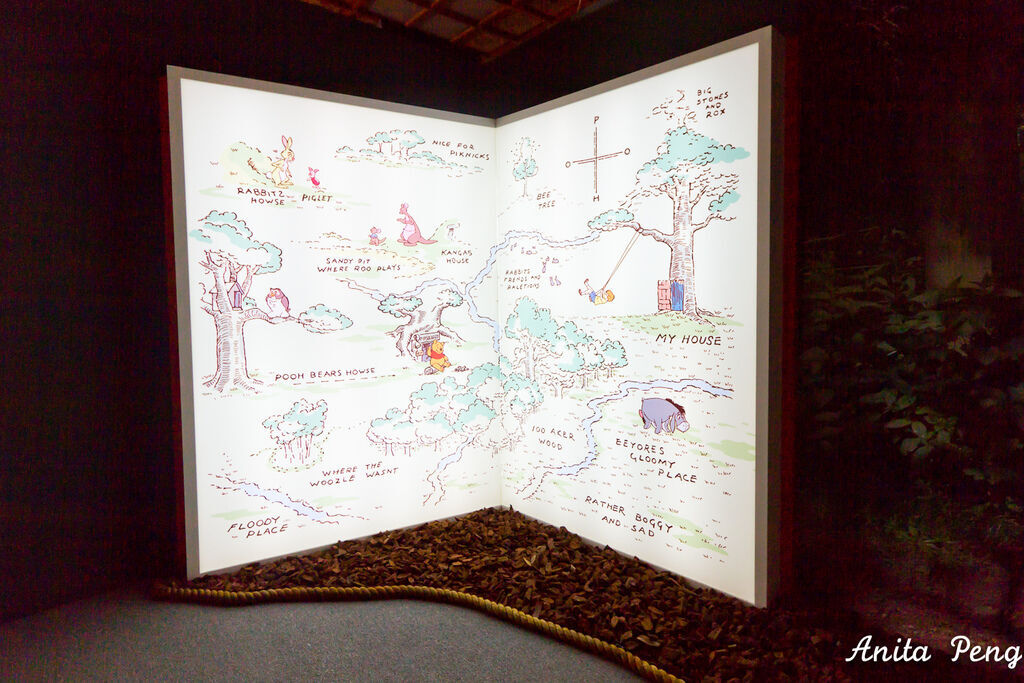 NICE FOR
PIKNICKS
RABBITZ
HOWSE
PIGLET
SANDY PIT
WHERE ROO PLAYS
KANGAS
HOUSE
POOH BEARS HOWSE
WHERE THE
WOOZLE WASNT
FLOODY
PLACE
BIG
STONES
AND
ROX
P
O O
H
BEE
TREE
RABBITS
FRENDS AND
RALETIONS
MY HOUSE
100 ACER
WOOD
EEYORES
GLOOMY
PLACE
RATHER BOGGY
AND SAD
Anita Peng